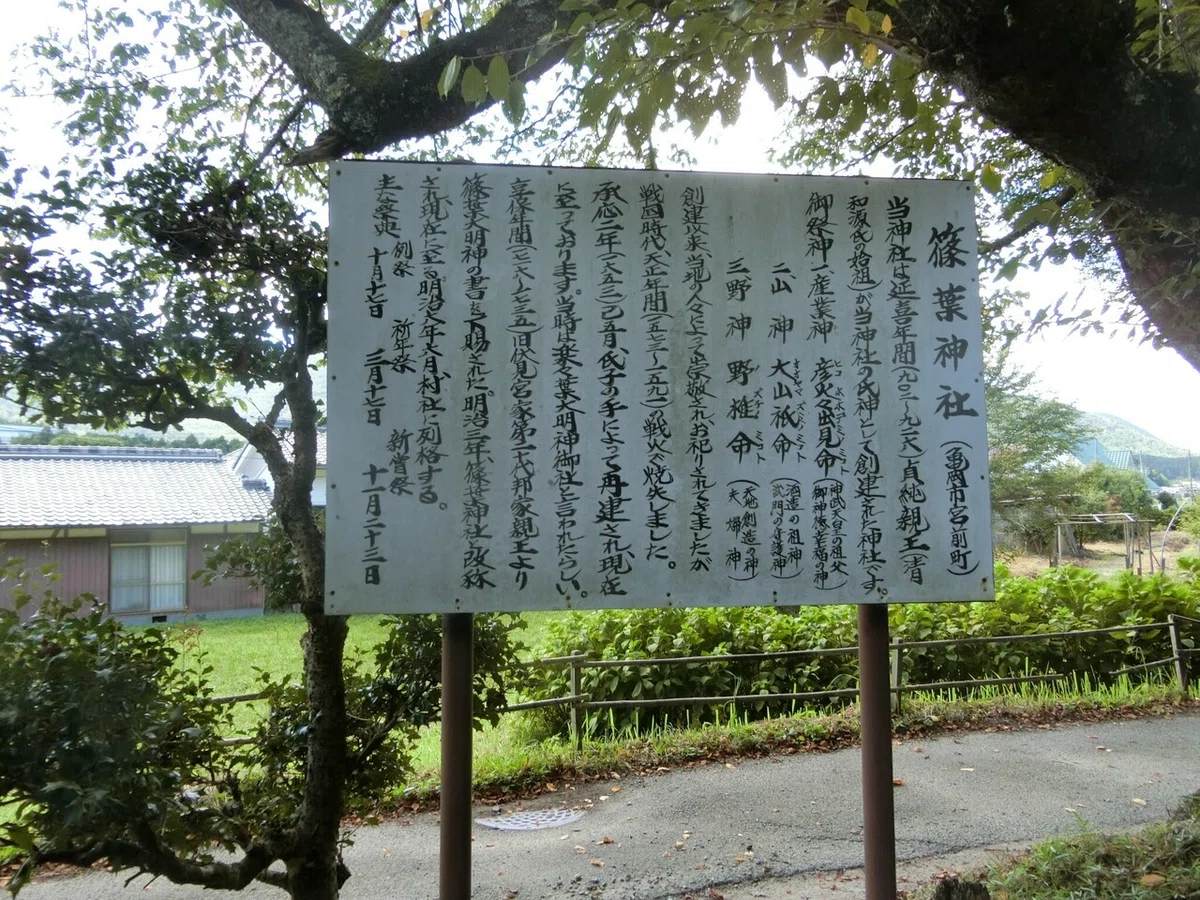 篠葉神社（亀岡市宮前町）
当神社は延喜年間（九〇一〜九二六）貞純親王（清
和源氏の始祖）が当神社の氏神として創建された神社です。
御祭神 一、産業神 彦火々出見命（神武天皇の祖父 御神徳幸福の神）
二、山神 大山祇命（酒造の祖神 武門の守護神）
三、野神 野椎命（天地創造の神 夫婦神）
創建以来、当地の人々によって崇敬されお祀りされてきましたが
戦国時代、天正年間（一五七三〜一五九一）の戦火で焼失しました。
承応二年（一六五三）己五月、氏子の手によって再建され、現在
に至っております。当時は楽々葉大明神御社と言われたらしい。
享保年間（一七一六〜一七三五）旧伏見宮家第一代邦家親王より
篠葉大明神の書を下賜された。明治三年篠葉神社と改称
され現在に至る。明治六年六月村社に列格する。
主な祭典 例祭 十月十七日 祈年祭 三月十七日 新嘗祭 十一月二十三日